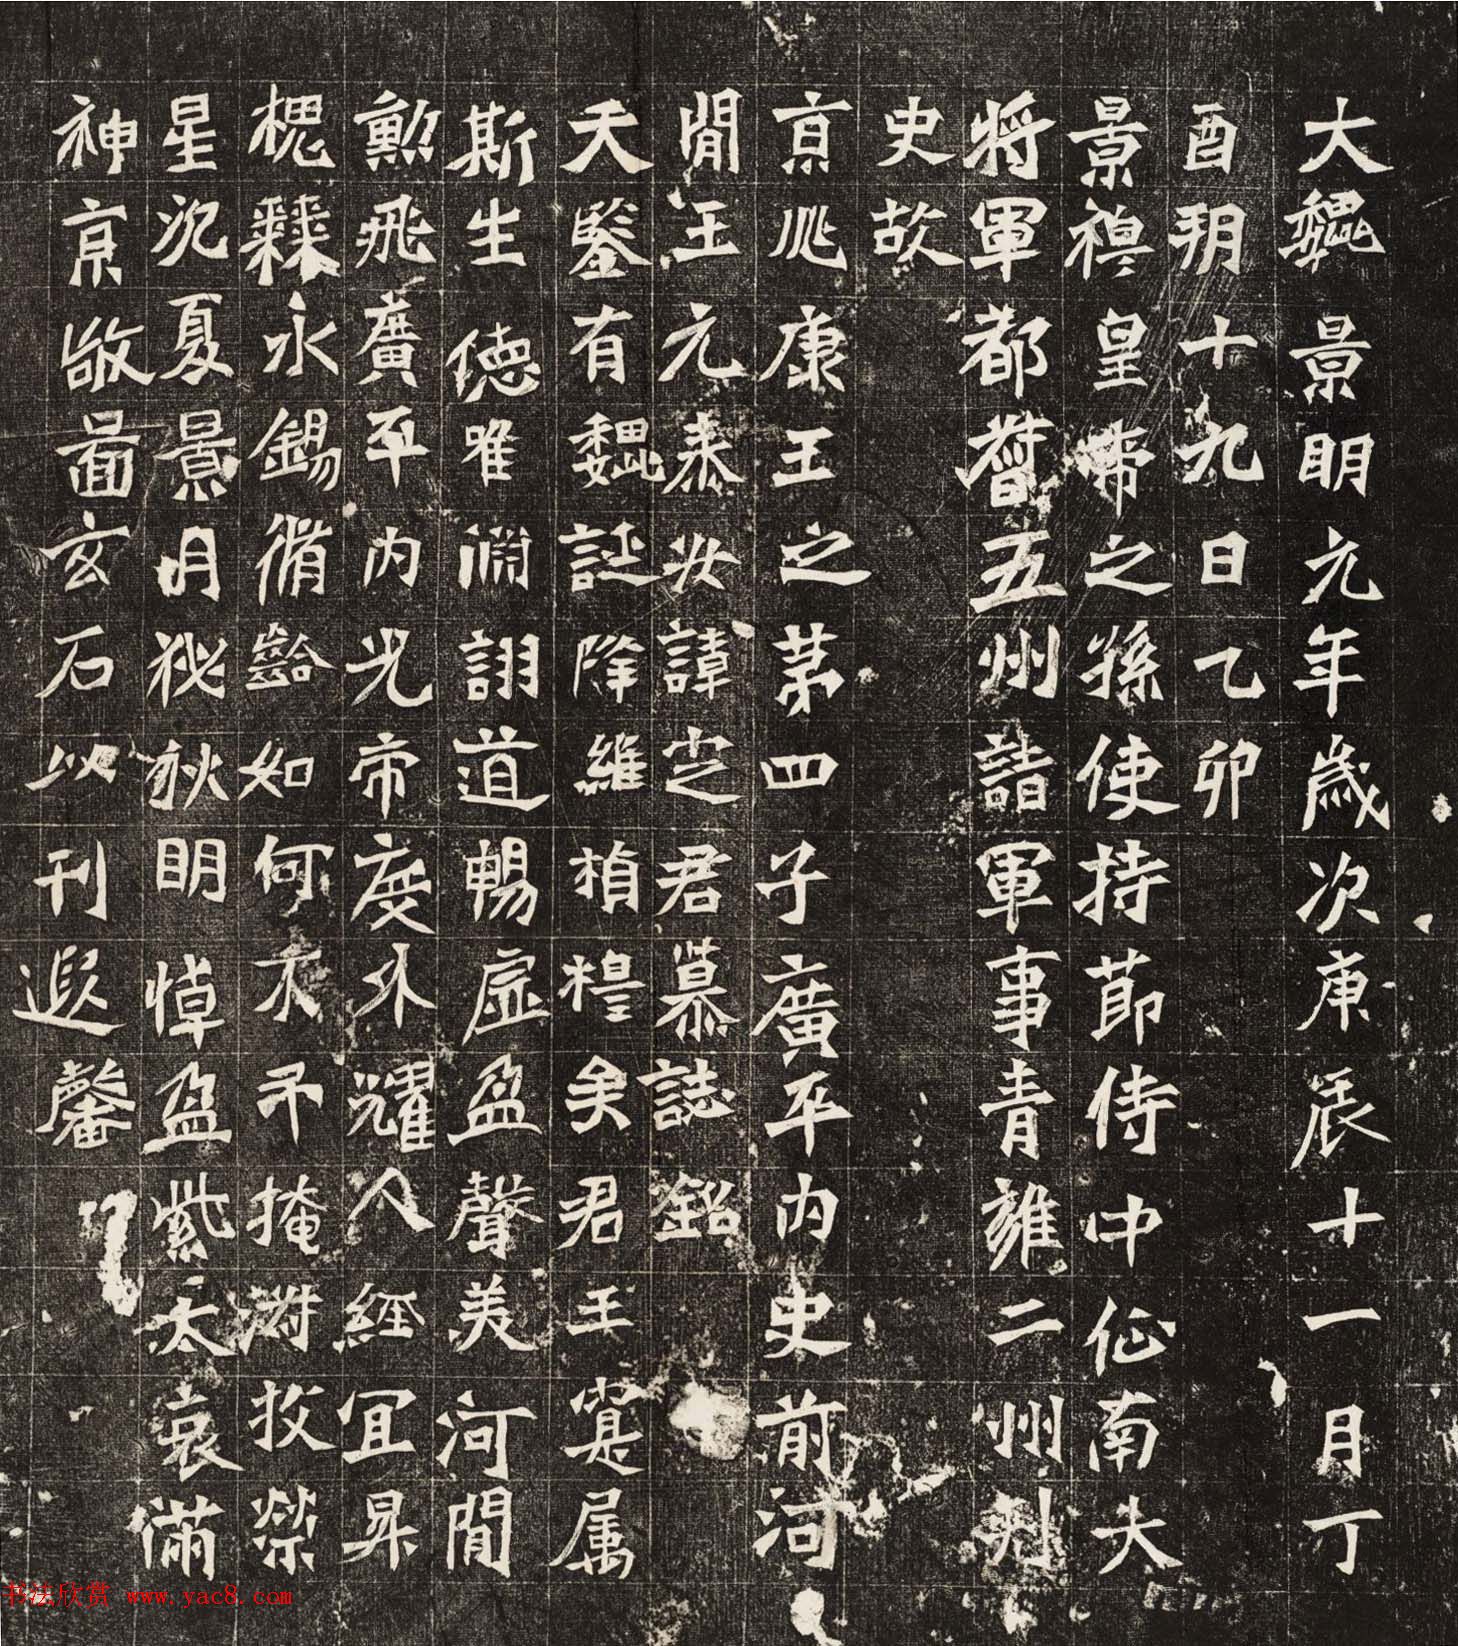 大魏景明元年歲次庚辰十一月丁
酉朔十九日乙卯
景穆皇帝之孫使持節侍中征南大
將軍都督五州諸軍事青雍二州刺
史故
京兆康王之第四子廣平內史前河
間王元泰安諱定君墓誌銘
天鑒有魏誕降維楨穆矣君王寔属
斯生德唯淵詡道暢虛盈聲美河間
勳飛廣平內光帝度外耀人經宜昇
槐棘永錫脩齡如何不弔掩投榮
星沉夏景月祕秋明悼盈紫太哀滿
神京敬圖玄石以刊遐馨
书法欣赏 www.yac8.com